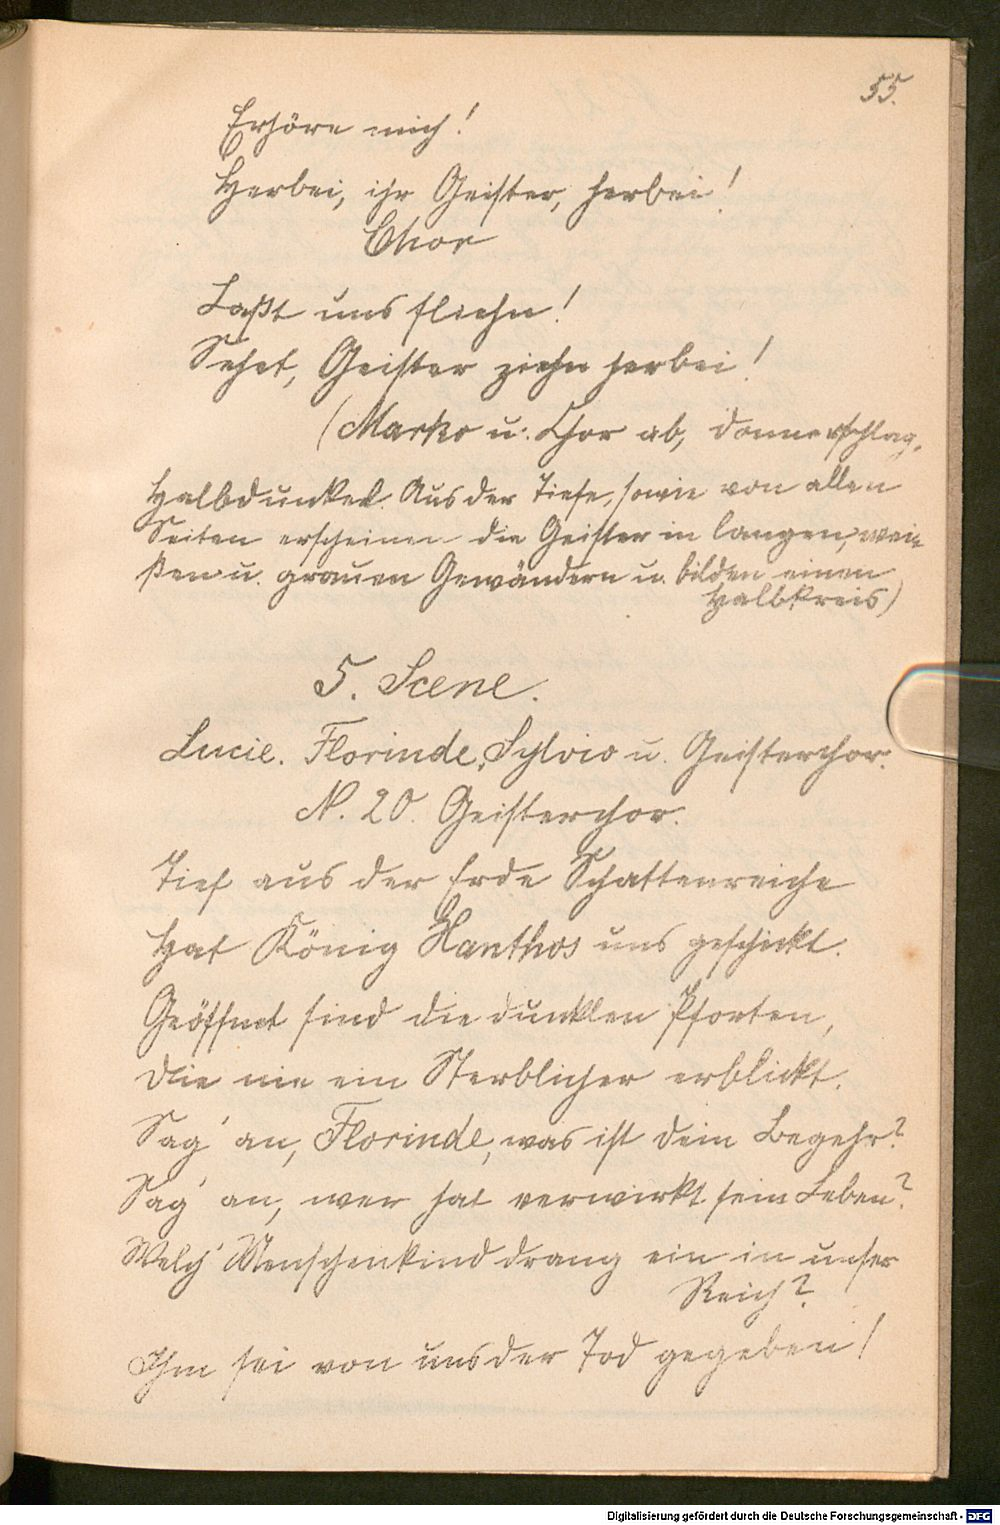 55.
Erhöre mich!
Herbei, ihr Geister, herbei!
Chor
Laßt uns fliehn!
Sehet, Geister ziehn herbei!
(Marko u. Chor ab, Donnerschlag,
Halbdunkel. Aus der Tiefe, sowie von allen
Seiten erscheinen die Geister in langen, wei-
ßen u. grauen Gewändern u. bilden einen
Halbkreis)
5. Scene.
Lucie. Florinde, Sylvio u. Geisterchor.
N. 20. Geisterchor.
Tief aus der Erde Schattenreiche
Hat König Xanthos uns geschickt.
Geöffnet sind die dunklen Pforten,
Die nie ein Sterblicher erblickt.
Sag' an, Florinde, was ist dein Begehr?
Sag' an, wer hat verwirkt sein Leben?
Welch' Menschenkind drang ein in unser
Reich?
Ihm sei von uns der Tod gegeben!
Digitalisierung gefördert durch die Deutsche Forschungsgemeinschaft - DFG